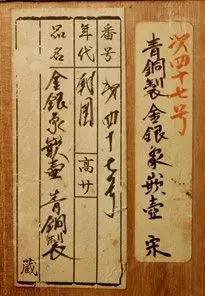 次四十七号
青銅製金銀象嵌壺
番号 次四十七号
年代 列国 高廿
品名 金銀象嵌壺 青銅製
蔵